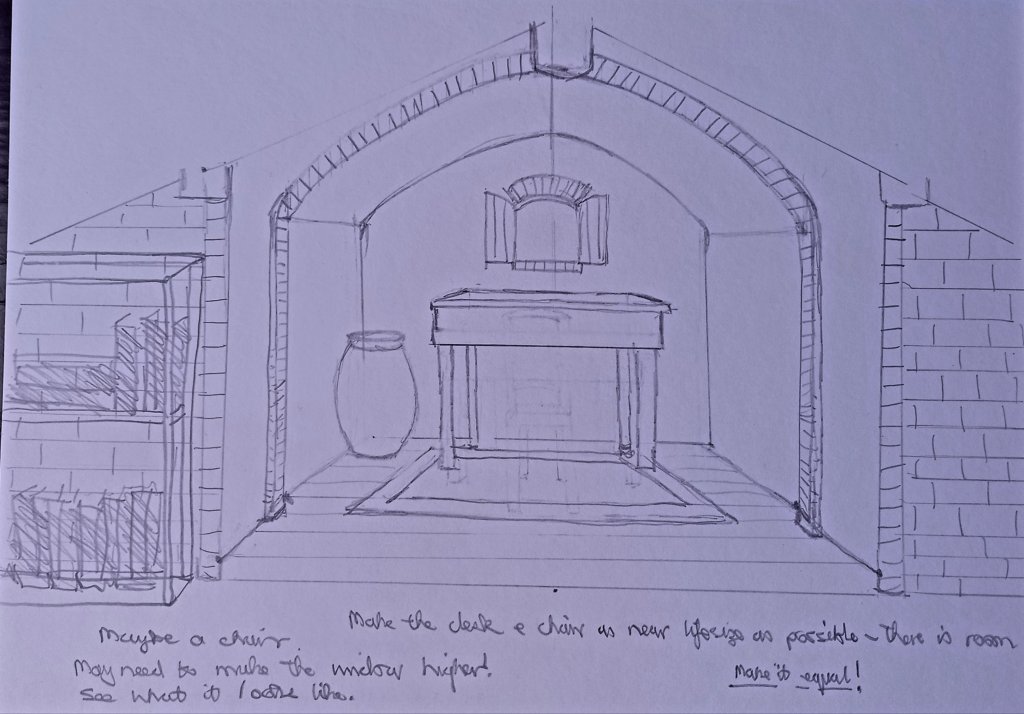 Maybe a chair.
Make the desk & chair as near lifesize as possible - there is room
May need to make the window higher!
See what it looks like.
Make it equal!